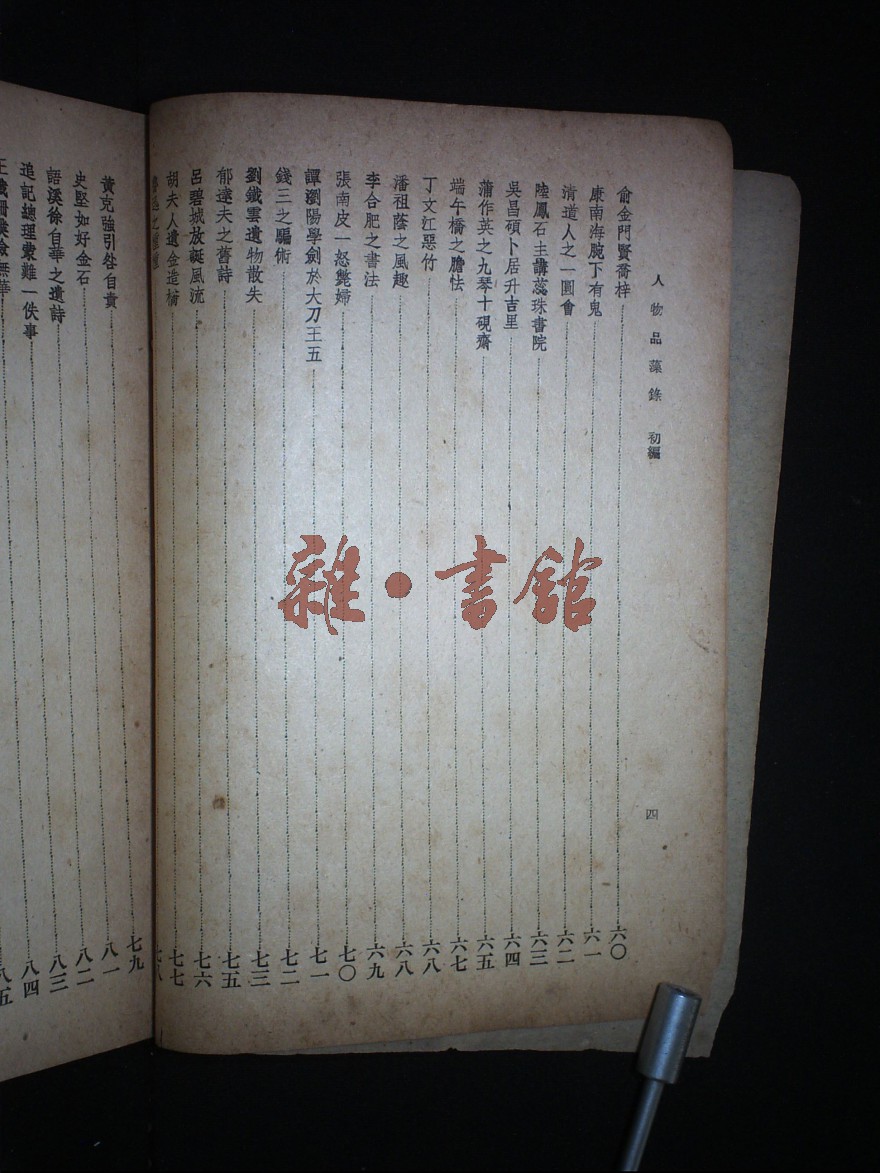 人物品藻錄 初編
四
俞金門賢喬梓 六〇
康南海腕下有鬼 六一
清道人之一圓會 六二
陸鳳石主講蕊珠書院 六三
吳昌碩卜居升吉里 六四
蒲作英之九琴十硯齋 六五
端午橋之膽怯 六七
丁文江惡竹 六八
潘祖蔭之風趣 六八
李合肥之書法 六九
張南皮一怒斃婦 七〇
譚瀏陽學劍於大刀王五 七一
錢三之騙術 七二
劉鐵雲遺物散失 七三
郁達夫之舊詩 七五
呂碧城放誕風流 七六
胡夫人遺金造橋 七七
之 七八
黃克強引咎自責 七九
史堅如好金石 八一
語溪徐自華之遺詩 八二
追記總理蒙難一佚事 八三
王 無華 八四
八五
雜·書館